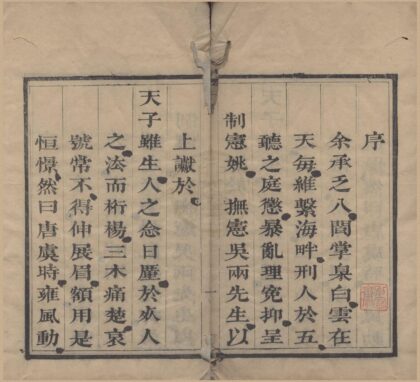 序
余承乏八閩掌臬白雲在
天每維繫海畔刑人於五
聽之庭懲暴亂理寃抑呈
制憲姚撫憲吳兩先生以
上讞於
天子雖生人之念日厪於人
之法而桁楊三木痛楚哀
號常不得伸展眉額用是
恒憬然曰唐虞時雍風動